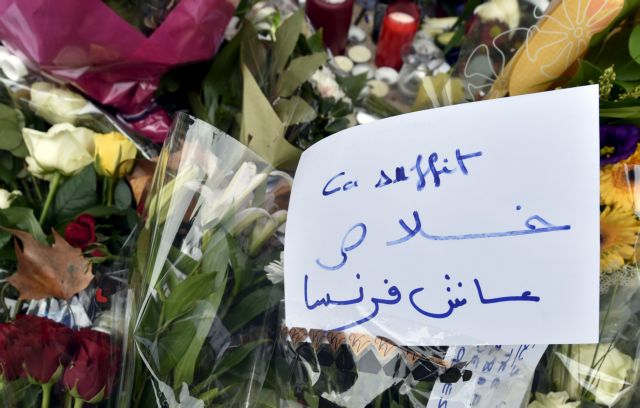 Ca suffit
خلاص
عاش فرنسا